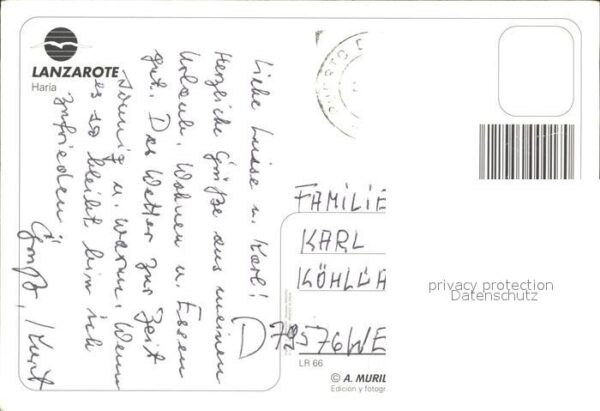 LANZAROTE
Haría
Liebe Luise u. Karl!
Herzliche Grüße aus meinem
Urlaub. Wohnen u. Essen
gut. Das Wetter zur Zeit
sonnig u. warm. Wenn
es so bleibt bin ich
zufrieden.
Gruß, Kurt
FAMILIE
KARL
KÖHLE
D 79576 WE
LR 66
© A. MURIL
Edición y fotogr
privacy protection
Datenschutz